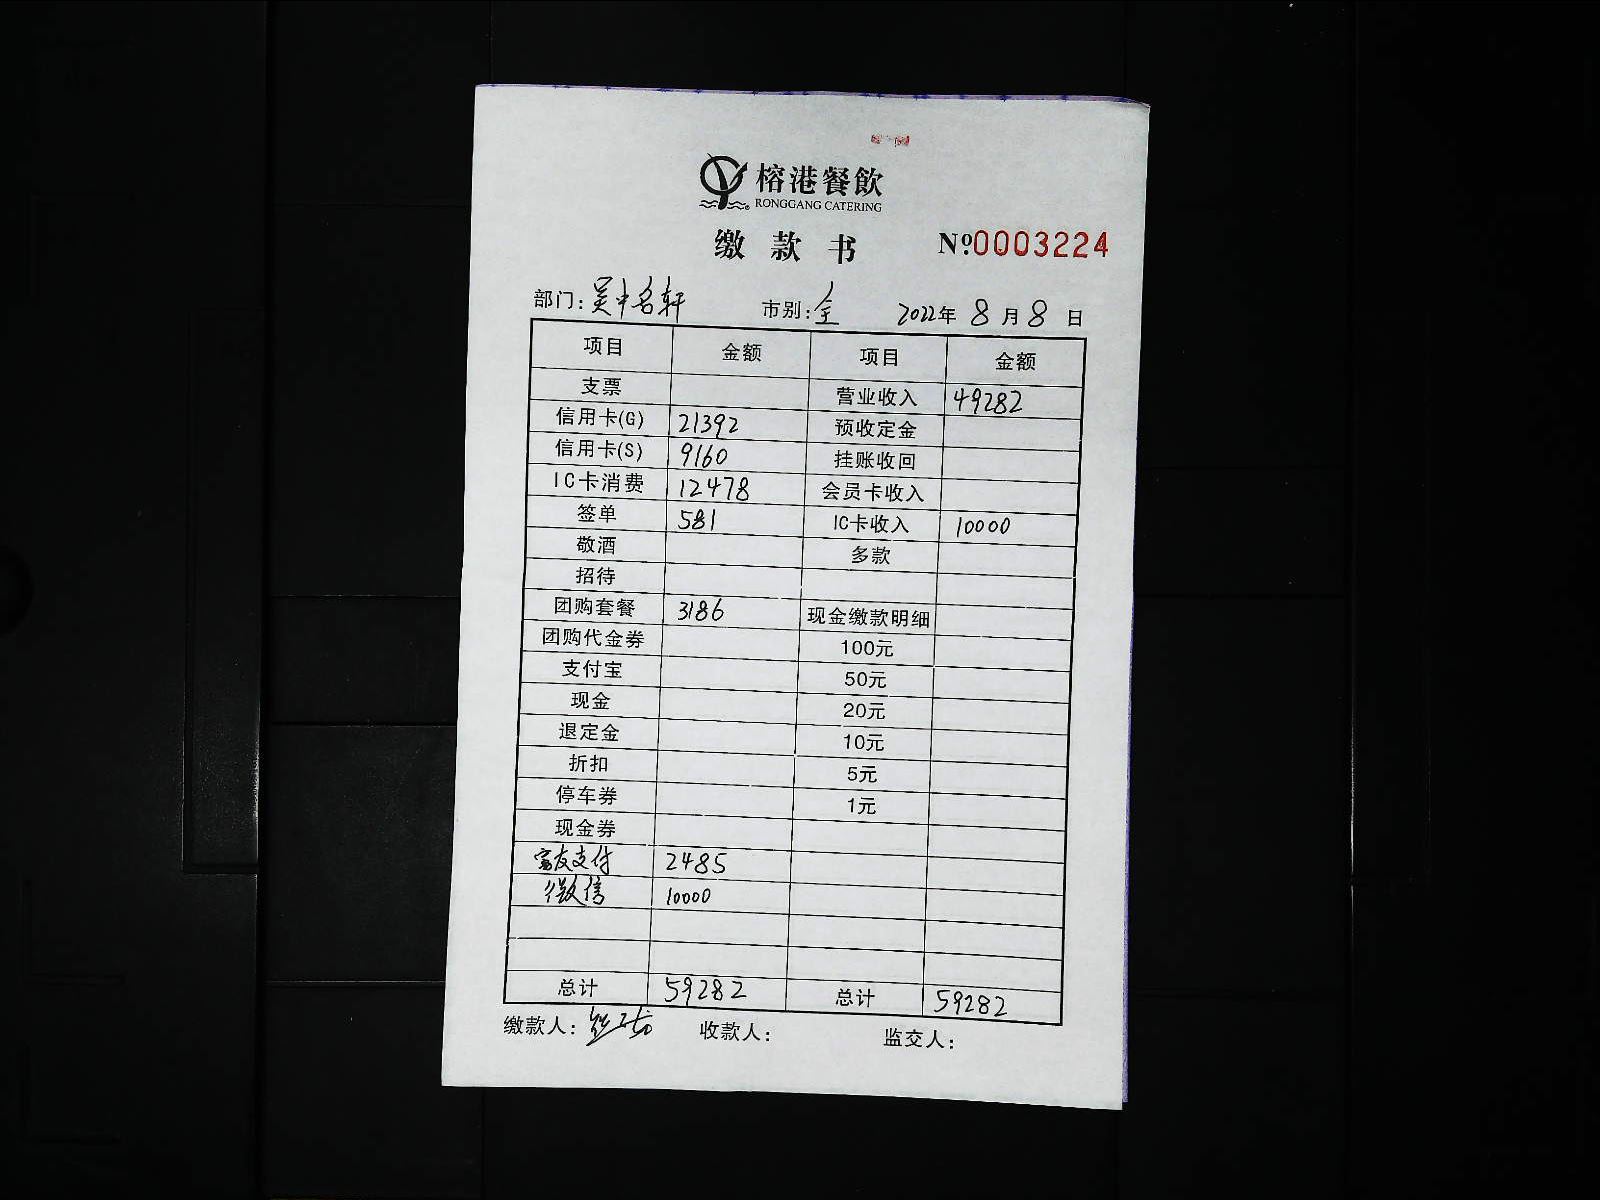 榕港餐飲
RONGGANG CATERING
缴款书 Nº:0003224
部门:吴中名轩 市别:全 2022年8月8日
项目 金额 项目 金额
支票 营业收入 49282
信用卡(G) 21392 预收定金
信用卡(S) 9160 挂账收回
IC卡消费 12478 会员卡收入
签单 581 IC卡收入 10000
敬酒 多款
招待
团购套餐 3186 现金缴款明细
团购代金券 100元
支付宝 50元
现金 20元
退定金 10元
折扣 5元
停车券 1元
现金券
富友支付 2485
微信 10000
总计 59282 总计 59282
缴款人: 收款人: 监交人: